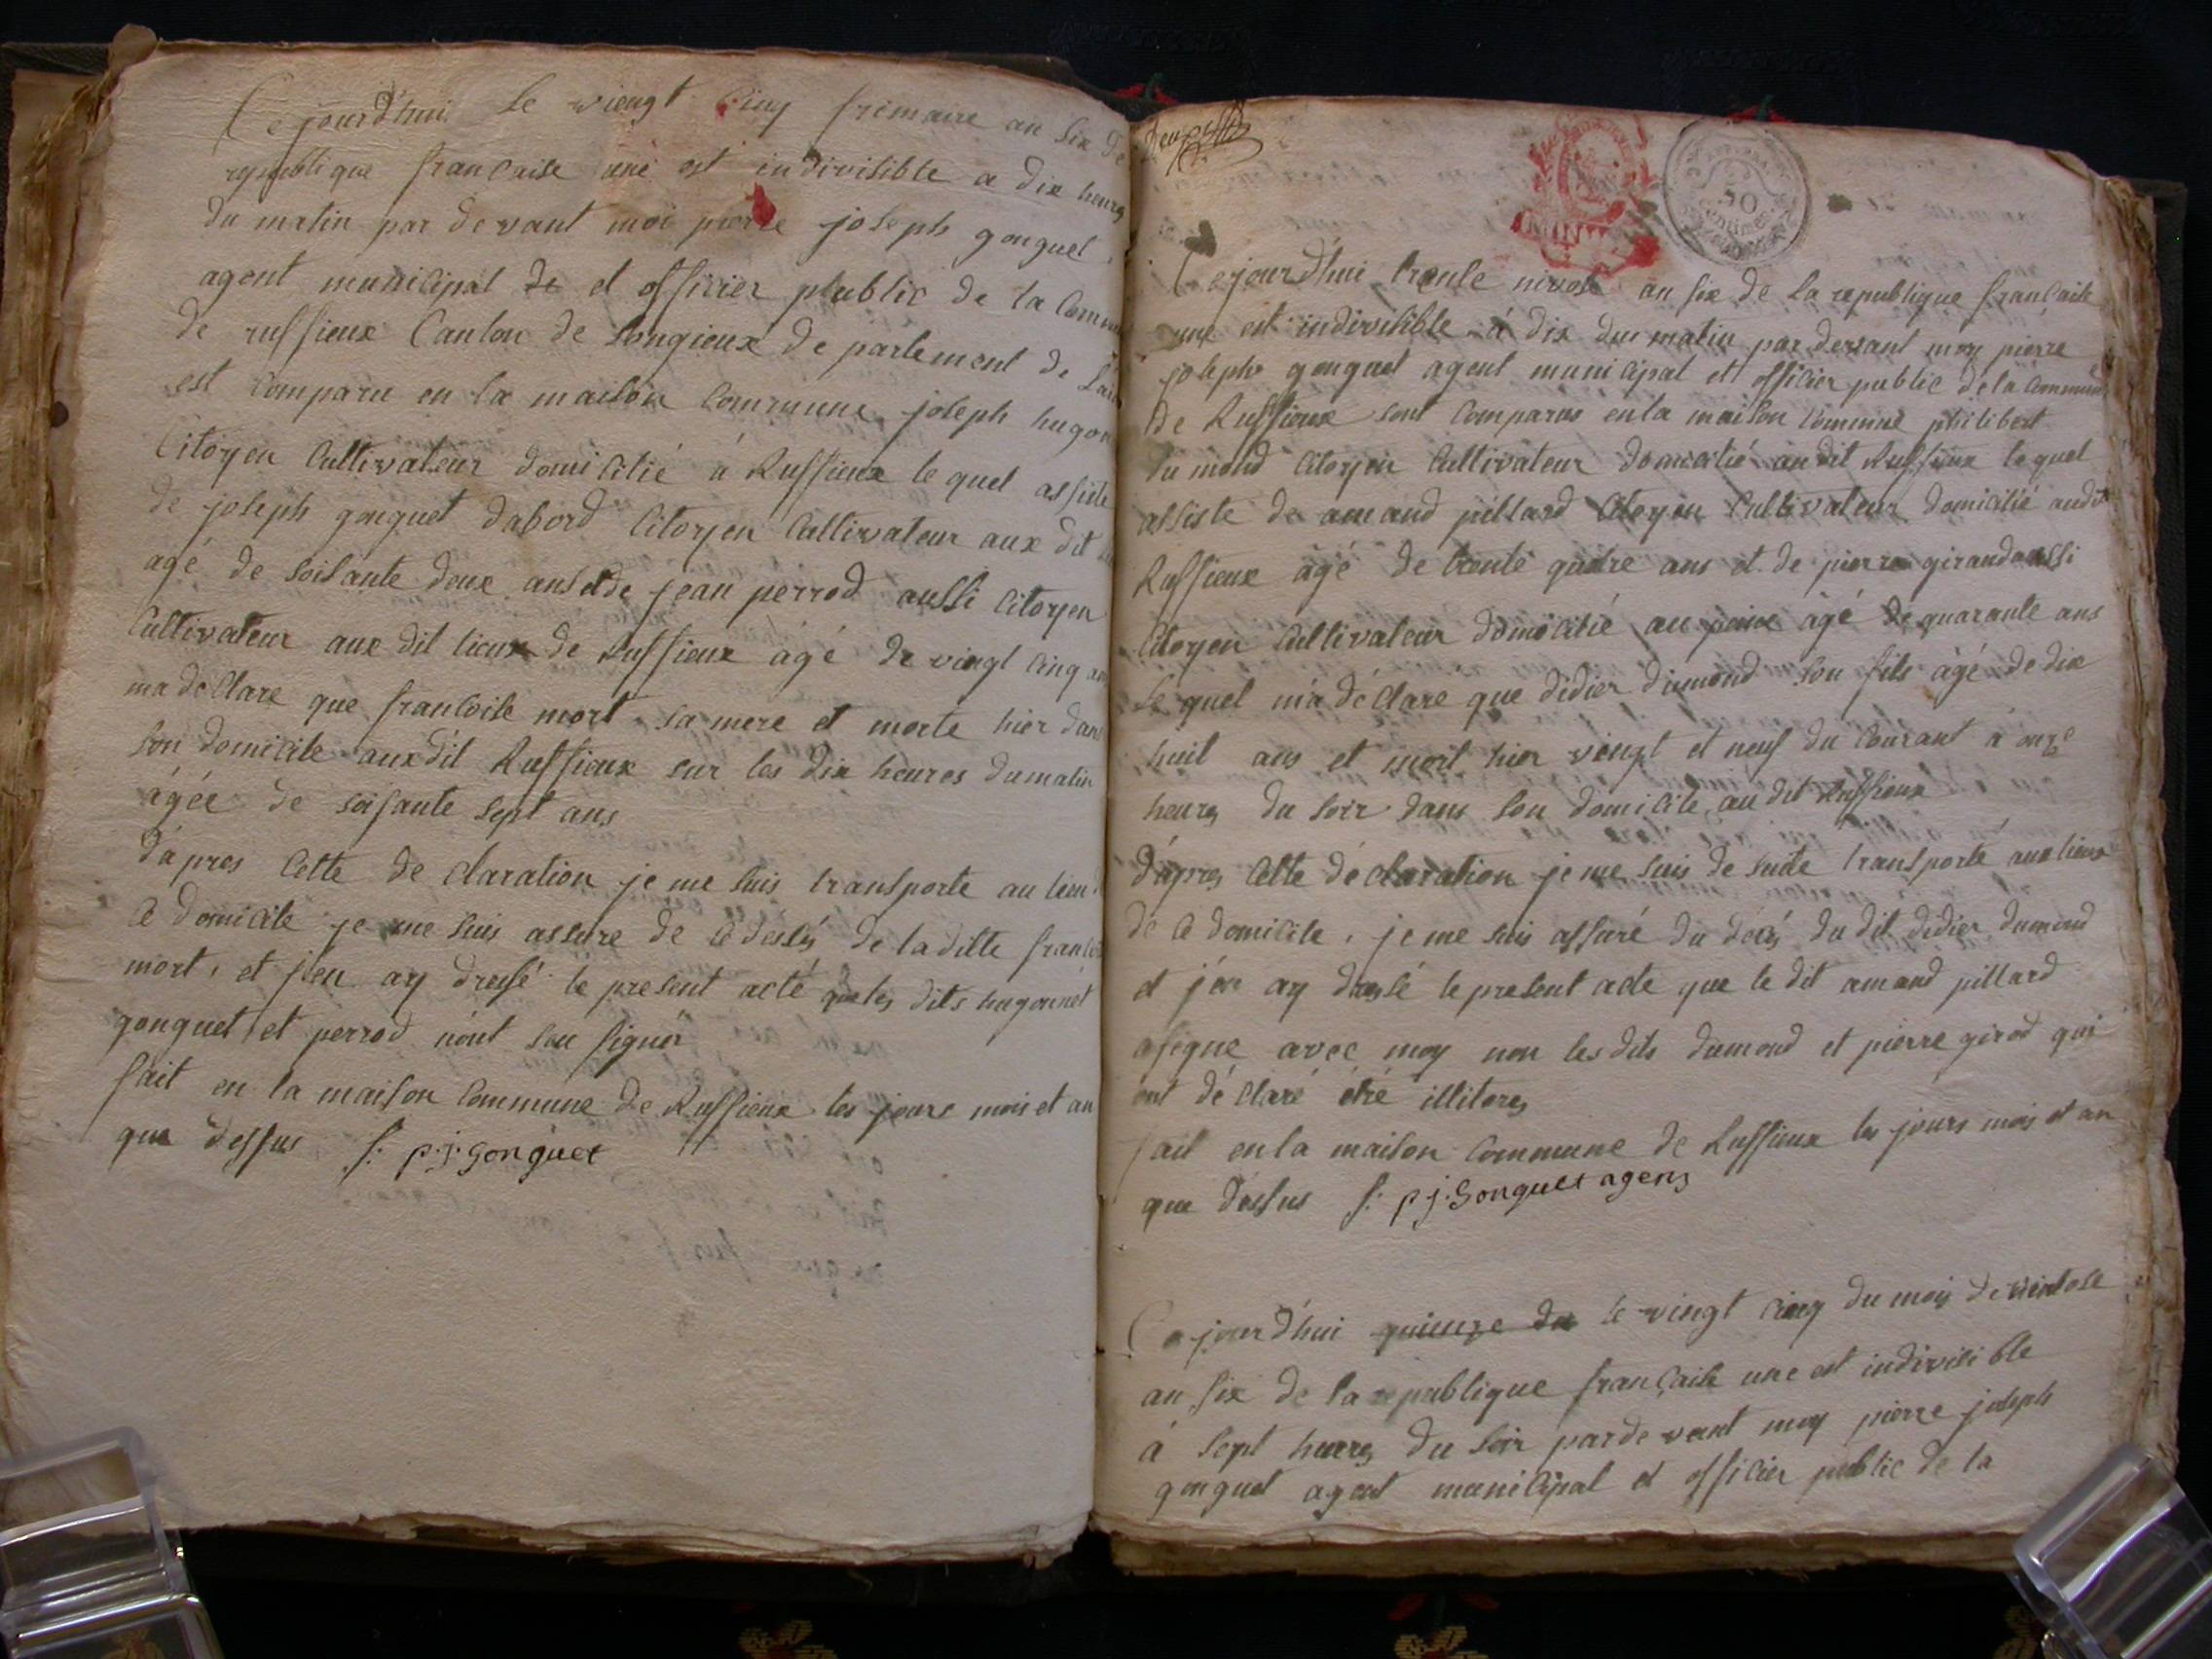 Cejourd'hui le viengt cinq frimaire an six de
republique francaise une est indivisible a dix heures
du matin par devant moi pierre joseph gonguet
agent municipal de et officier plublic de la Commu
de ruffieux Canton de Songieux departement de Lain
est comparu en la maison Commune joseph hugon
Citoyen Cultivateur domicilié à Ruffieux le quel assiste
de joseph gonguet dabord Citoyen Cultivateur aux dit
agé de soisante deux ans et de jean perrod aussi Citoyen
Cultivateur aux dit lieux de Ruffieux àgé de vingt cinq an
ma déClare que francoise mort sa mere et morte hier dans
son domicile aux dit Ruffieux sur les dix heures du matin
àgée de soisante sept ans
d'apres Cette de claration je me suis transporte au lieu d
Ce domicile je me suis assure de Ce dessès de laditte franco
mort, et j'en ay dressé le present acté que les dits hugonnet
gonguet et perrod n'ont seu signér
fait en la maison Commune de Ruffieux les jours mois et an
que dessus f: p:j:gonguet
50
centimes
Cejourd'hui trente nivose an six de la republique française
une est indivisible à dix du matin par devant moy pierre
joseph gonguet agent municipal et officier public de la Commune
de Ruffieux sont Comparus en la maison Commune philibert
dumond Citoyen Cultivateur domicilié au dit Ruffieux le quel
assiste de amand pillard Citoyen Cultivateur domicilié audit
Ruffieux àgé de trente quatre ans et de pierre giraud aussi
Citoyen Cultivateur domicilié au àgé de quarante ans
Le quel m'a déClare que didier dumond son fils àgé de dix
huit ans et mort hier vingt et neuf du Courant à onze
heures du soir dans son domicile au dit Ruffieux
d'apres Cette déClaration je me suis de suite transporté aux lieux
de Ce domicile, je me suis assuré du décés du dit didier dumond
et j'en ay dressé le present acte que le dit amand pillard
a signe avec moy non les dits dumond et pierre girod qui
ont déClaré étré illiteres
fait en la maison Commune de Ruffieux les jours mois et an
que dessus f: p j: Gonguet agens
Cejourd'hui quinze du le vingt cinq du mois de ventose
an six de la republique française une est indivisible
à sept heures du soir par devant moy pierre joseph
gonguet agent municipal et officier public de la